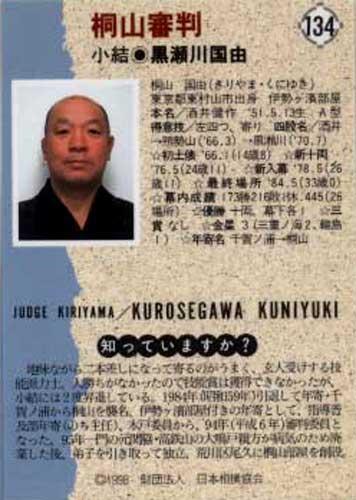 桐山審判
134
小結●黒瀬川国由
桐山 国由(きりやま・くにゆき)
東京都東村山市出身 伊勢ヶ濱部屋
本名/酒井健作 '51.5.13生 A型
得意技/左四つ、寄り 四股名/酒井
☆初土俵 '66.1(14歳8) ☆新十両
'76.5(24歳11) ☆新入幕 '78.5(26
歳11) ☆最終場所 '84.5(33歳0)
☆幕内成績
場所) ☆優勝 十両、幕下各1 ☆三
賞 なし ☆金星 3(三重ノ海2、輪島
1) ☆年寄名 千賀ノ浦→桐山
JUDGE KIRIYAMA/KUROSEGAWA KUNIYUKI
知っていますか?
地味ながら二本差しになって寄るのがうまく、玄人受けする技
能派力士。大勝ちがなかったので技能賞は獲得できなかったが、
小結には2度昇進している。1984年(昭和59年)引退して年寄・千
賀ノ浦から桐山を襲名、伊勢ヶ濱部屋付きの年寄として、指導普
及部年寄(のち主任)、木戸委員から、'94年(平成6年)審判委員と
なった。95年一門の元関脇・高鉄山の大鳴戸親方が病気のため廃
業した後、弟子を引き取って独立、荒川区尾久に桐山部屋を創設
©1998 財団法人 日本相撲協会